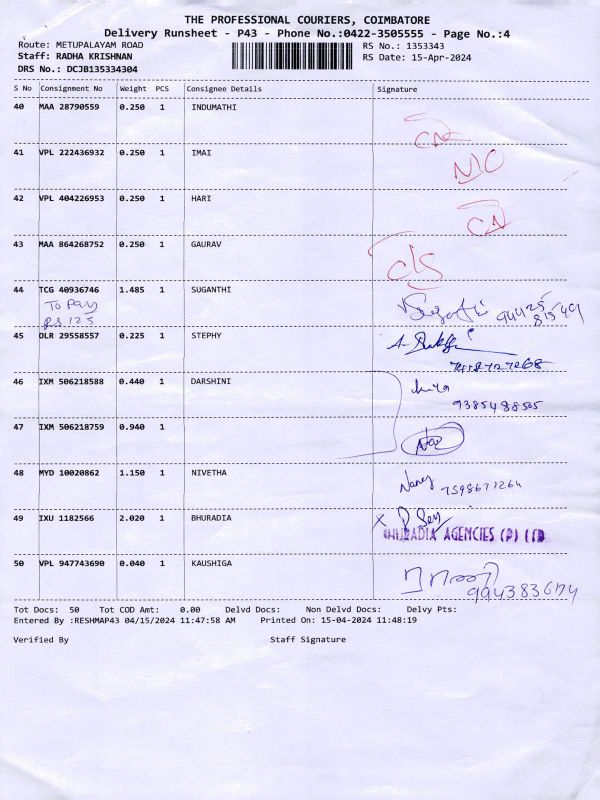 THE PROFESSIONAL COURIERS, COIMBATORE
Delivery Runsheet - P43 - Phone No.:0422-3505555 - Page No.:4
Route: METUPALAYAM ROAD RS No.: 1353343
Staff: RADHA KRISHNAN RS Date: 15-Apr-2024
DRS No.: DCJB135334304
S No Consignment No Weight PCS Consignee Details Signature
40 MAA 28790559 0.250 1 INDUMATHI
CN
41 VPL 222436932 0.250 1 IMAI
N/C
42 VPL 404226953 0.250 1 HARI
CN
43 MAA 864268752 0.250 1 GAURAV
C/S
44 TCG 40936746 1.485 1 SUGANTHI
To Pay
RS.125
94425
81549
45 DLR 29558557 0.225 1 STEPHY
46 IXM 506218588 0.440 1 DARSHINI
9385488505
47 IXM 506218759 0.940 1
48 MYD 10020862 1.150 1 NIVETHA
Nancy 7598671264
49 IXU 1182566 2.020 1 BHURADIA
BHURADIA AGENCIES (P) LTD
50 VPL 947743690 0.040 1 KAUSHIGA
Tot Docs: 50 Tot COD Amt: 0.00 Delvd Docs: Non Delvd Docs: Delvy Pts:
Entered By :RESHMAP43 04/15/2024 11:47:58 AM Printed On: 15-04-2024 11:48:19
Verified By Staff Signature